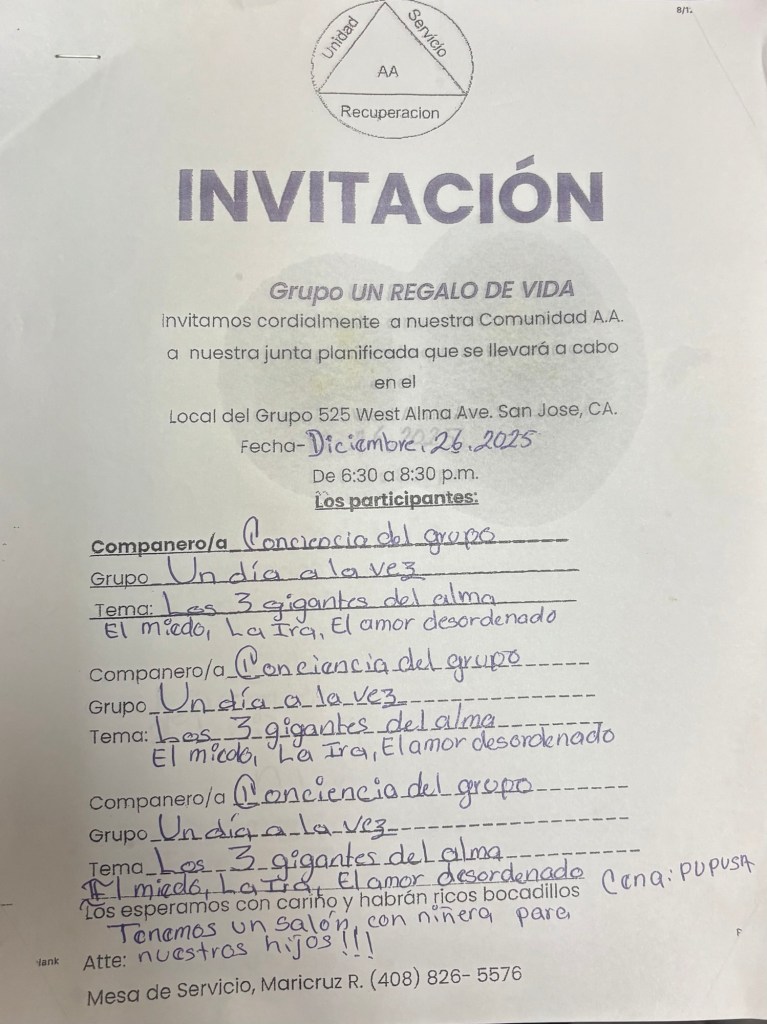 8/1.
Unidad
Servicio
AA
Recuperacion
INVITACIÓN
Grupo UN REGALO DE VIDA
Invitamos cordialmente a nuestra Comunidad A.A.
a nuestra junta planificada que se llevará a cabo
en el
Local del Grupo 525 West Alma Ave. San Jose, CA.
Fecha- Diciembre. 26. 2025
De 6:30 a 8:30 p.m.
Los participantes:
Companero/a Conciencia del grupo
Grupo Un día a la vez
Tema: Los 3 gigantes del alma
El miedo, La Ira, El amor desordenado
Companero/a Conciencia del grupo
Grupo Un día a la vez
Tema: Los 3 gigantes del alma
El miedo, La Ira, El amor desordenado
Companero/a Conciencia del grupo
Grupo Un día a la vez
Tema Los 3 gigantes del alma
El miedo, La Ira, El amor desordenado
Cena: PUPUSA
Los esperamos con cariño y habrán ricos bocadillos
Tenemos un salón, con niñera para
Atte: nuestros hijos!!!
Mesa de Servicio, Maricruz R. (408) 826- 5576